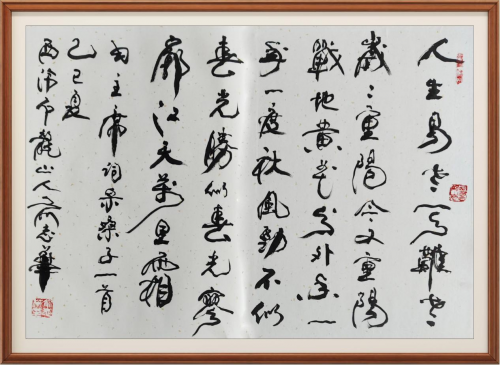 人生易老天難老
歲々重陽今又重陽
戰地黄花分外香一
年一度秋風勁不似
春光勝似春光寥
廓江天萬里霜
主席詞采桑子一首
己巳夏
龍山人志華